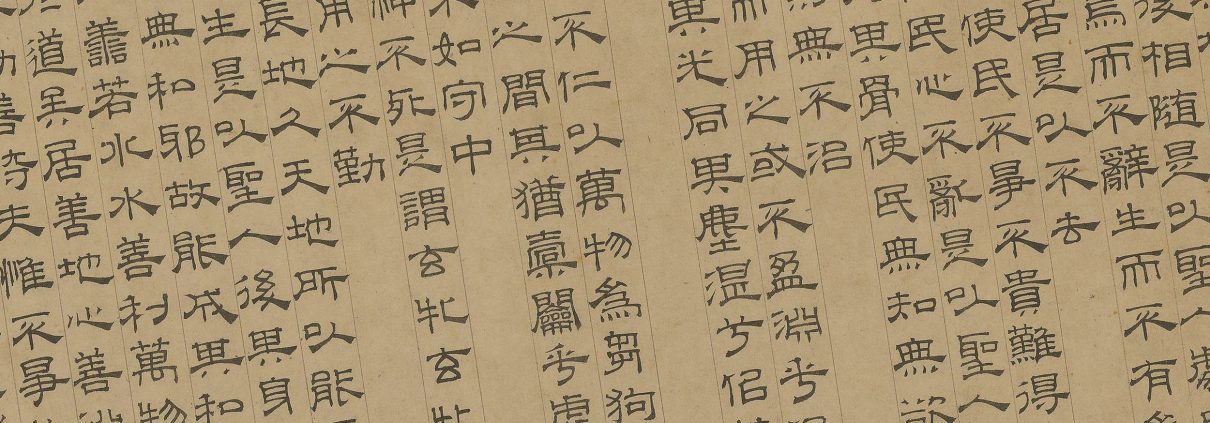 後相隨是以聖人處
焉而不辭生而不有
居是以不去
使民不爭不貴難得
民心不亂是以聖人
其骨使民無知無欲
無不治
而用之或不盈淵乎
其光同其塵湛兮佀
不仁以萬物為芻狗
之間其猶橐籥乎虛
如守中
神不死是謂玄牝玄牝
用之不勤
長地久天地所以能
生是以聖人後其身
無私耶故能成其私
善若水水善利萬物
道矣居善地心善
善夫惟不爭